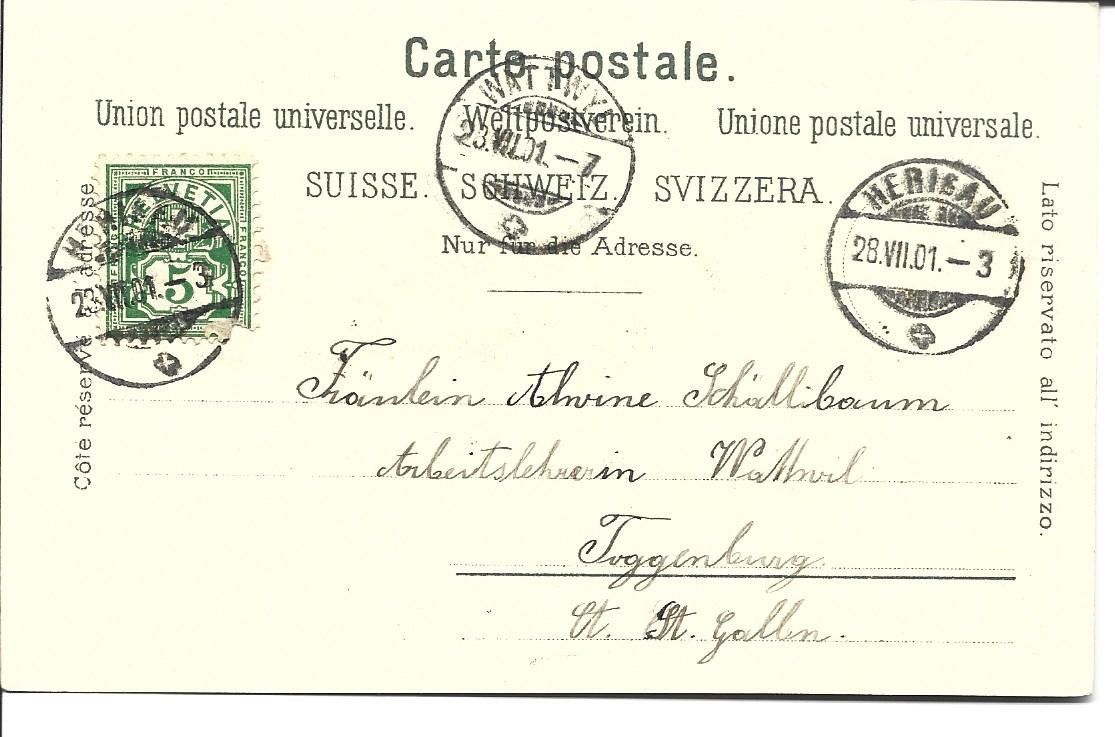 Carte postale.
Union postale universelle. Weltpostverein. Unione postale universale.
SUISSE. SCHWEIZ. SVIZZERA.
Nur für die Adresse.
WATTWYL
23.VII.01.–7
HERISAU
28.VII.01.–3
FRANCO
HELVETIA
FRANCO
FRANCO
5
HERISAU
23.VII.01.–3
Côté réservé à l'adresse
Lato riservato all' indirizzo.
Fräulein Alwine Schällibaum
Arbeitslehrerin Wattwil
Toggenburg
Ct. St. Gallen.